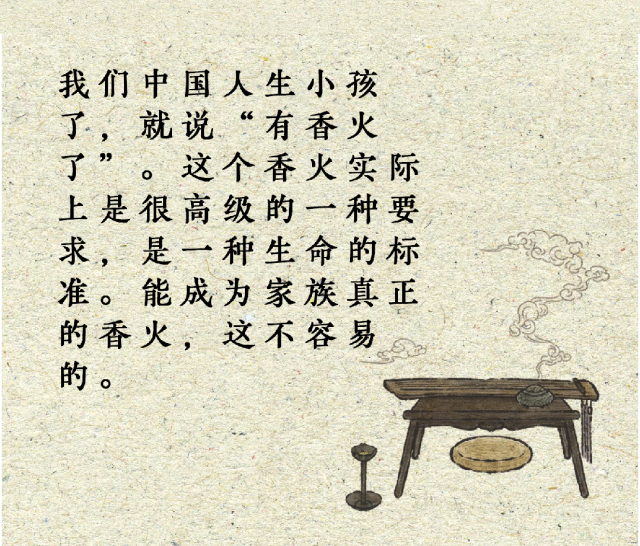 我们中国人生小孩
了，就说“有香火
了”。这个香火实际
上是很高级的一种要
求，是一种生命的标
准。能成为家族真正
的香火，这不容易
的。